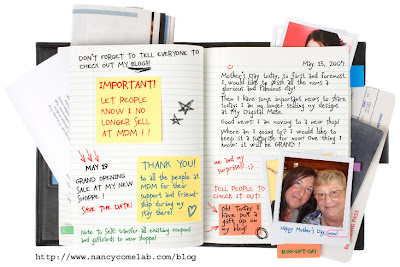 DON'T FORGET TO TELL EVERYONE TO
CHECK OUT MY BLOG!!
IMPORTANT!
LET PEOPLE
KNOW I NO
LONGER SELL
AT MDM!!
MAY 19
GRAND OPENING
SALE AT MY NEW
SHOPPE!
SAVE THE DATE!
THANK YOU!
to all the people at
MDM for their
support and friend-
ship during my
stay there!
Note to Self: transfer all existing coupons
and giftcards to new shoppe!
May 13, 2007
Mother's Day today, so first and foremost
I would like to wish all the moms a
glorious and fabulous day!
Then I have some important news to share:
today I am no longer selling my designs
at My Digital Muse.
Good news I am moving to a new shop!
Where am I going to? I would like to
keep it a surprise for now! One thing I
know: it will be GRAND!
me and my
surprises! :)
TELL PEOPLE TO
CHECK IT OUT!
Oh! Today I
have put a
gift up on
my blog!
Happy Mother's Day
BLOG-GIFT-DAY
BOARDING PASS
http://www.nancycomelab.com/blog